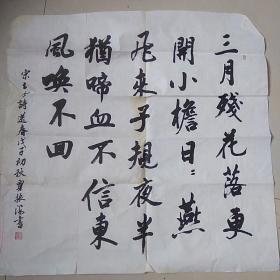 三月殘花落更
開小檐日〻燕
飛來子規夜半
猶啼血不信東
風喚不回
宋王令詩送春戊子初秋書